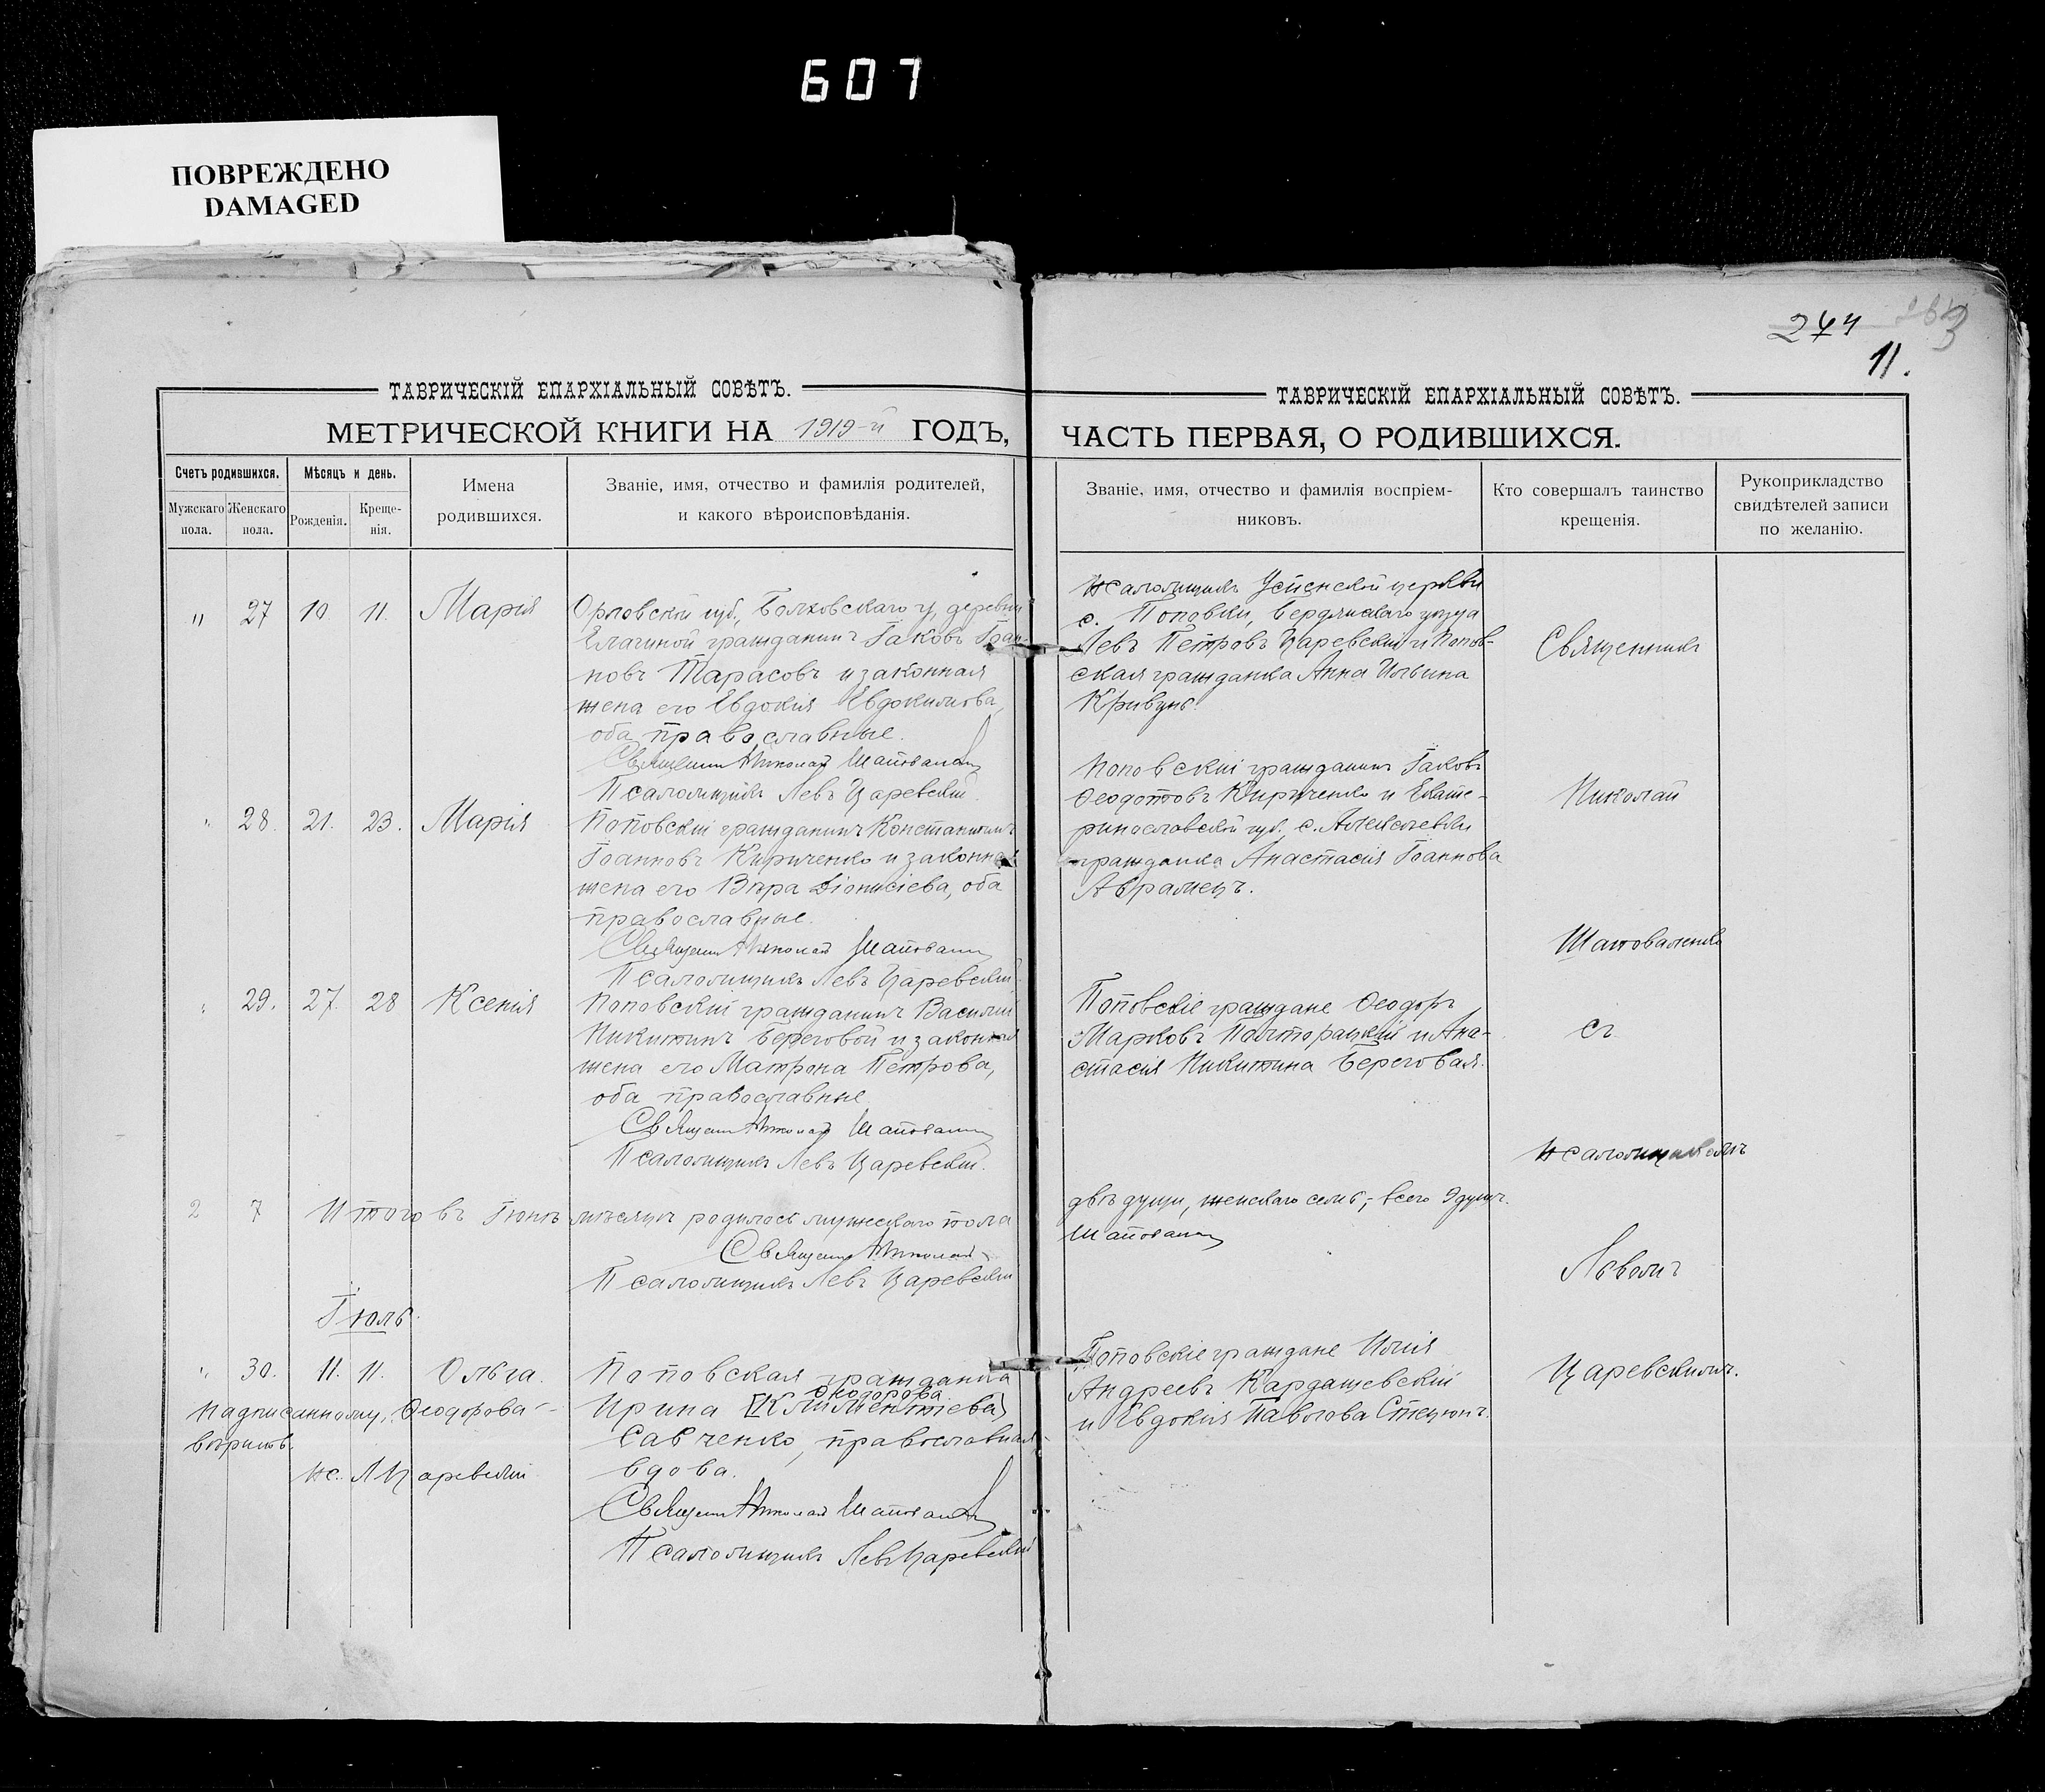 607
ПОВРЕЖДЕНО
DAMAGED
244
11.
ТАВРИЧЕСКІЙ ЕПАРХІАЛЬНЫЙ СОВѢТЪ.
МЕТРИЧЕСКОЙ КНИГИ НА 1919-й ГОДЪ,
Счетъ родившихся.
Мѣсяцъ и день.
Мужскаго пола.
Женскаго пола.
Рожденія.
Креще-
нія.
Имена
родившихся.
Званіе, имя, отчество и фамилія родителей,
и какого вѣроисповѣданія.
" 27 10 11. Марія
Орловской губ., Болховскаго у, деревни
Елагиной гражданинъ Іаковъ Іоан-
новъ Тарасовъ и законная
жена его Евдокія Евдокимова,
оба православные.
Священникъ Николай Шаповаленко
Псаломщикъ Левъ Царевскій.
" 28. 21. 23. Марія
Поповскій гражданинъ Константинъ
Іоанновъ Кириченко и законная
жена его Вѣра Діонисіева, оба
православные.
Священникъ Николай Шаповаленко
Псаломщикъ Левъ Царевскій.
" 29. 27. 28 Ксенія
Поповскій гражданинъ Василій
Никитинъ Береговой и законная
жена его Матрона Петрова,
оба православные
Священникъ Николай Шаповаленко
Псаломщикъ Левъ Царевскій.
2 7 Итого въ Іюнѣ мѣсяцѣ родилось мужескаго пола
Священникъ Николай
Псаломщикъ Левъ Царевскій
Іюль.
" 30. 11. 11. Ольга.
Поповская гражданка
Ѳеодорова
Ирина [Климентіева]
Савченко, православная
вдова.
Священникъ Николай Шаповаленко
Псаломщикъ Левъ Царевскій
Надписанному „Ѳеодорова“-
вѣрить.
пс. Л Царевскій
ТАВРИЧЕСКІЙ ЕПАРХІАЛЬНЫЙ СОВѢТЪ.
ЧАСТЬ ПЕРВАЯ, О РОДИВШИХСЯ.
Званіе, имя, отчество и фамилія воспріем-
никовъ.
Кто совершалъ таинство
крещенія.
Рукоприкладство
свидѣтелей записи
по желанію.
Псаломщикъ Успенской церкви
с. Поповки, Бердянскаго уѣзда
Левъ Петровъ Царевскій и Попов-
ская гражданка Анна Ильина
Кривунь.
Поповскій гражданинъ Іаковъ
Ѳеодотовъ Кириченко и Екате-
ринославской губ. с. Алексѣевки
гражданка Анастасія Іоаннова
Аврамецъ.
Поповскіе граждане Ѳеодоръ
Марковъ Полторацкій и Ана-
стасія Никитина Береговая.
двѣ души, женскаго семь,- всего 9 душъ.
Шаповаленко
Поповскіе граждане Илія
Андреевъ Кардашевскій
и Евдокія Павлова Стецюнъ.
Священникъ
Николай
Шаповаленко
съ
псаломщикомъ
Львомъ
Царевскимъ.